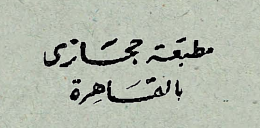 مطبعة حجازى
بالقاهرة